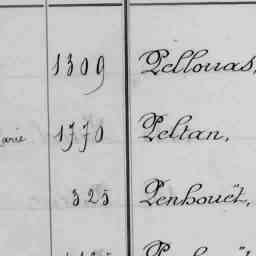 1309 Pellouas,
arie 1770 Peltan,
325 Penhouët,